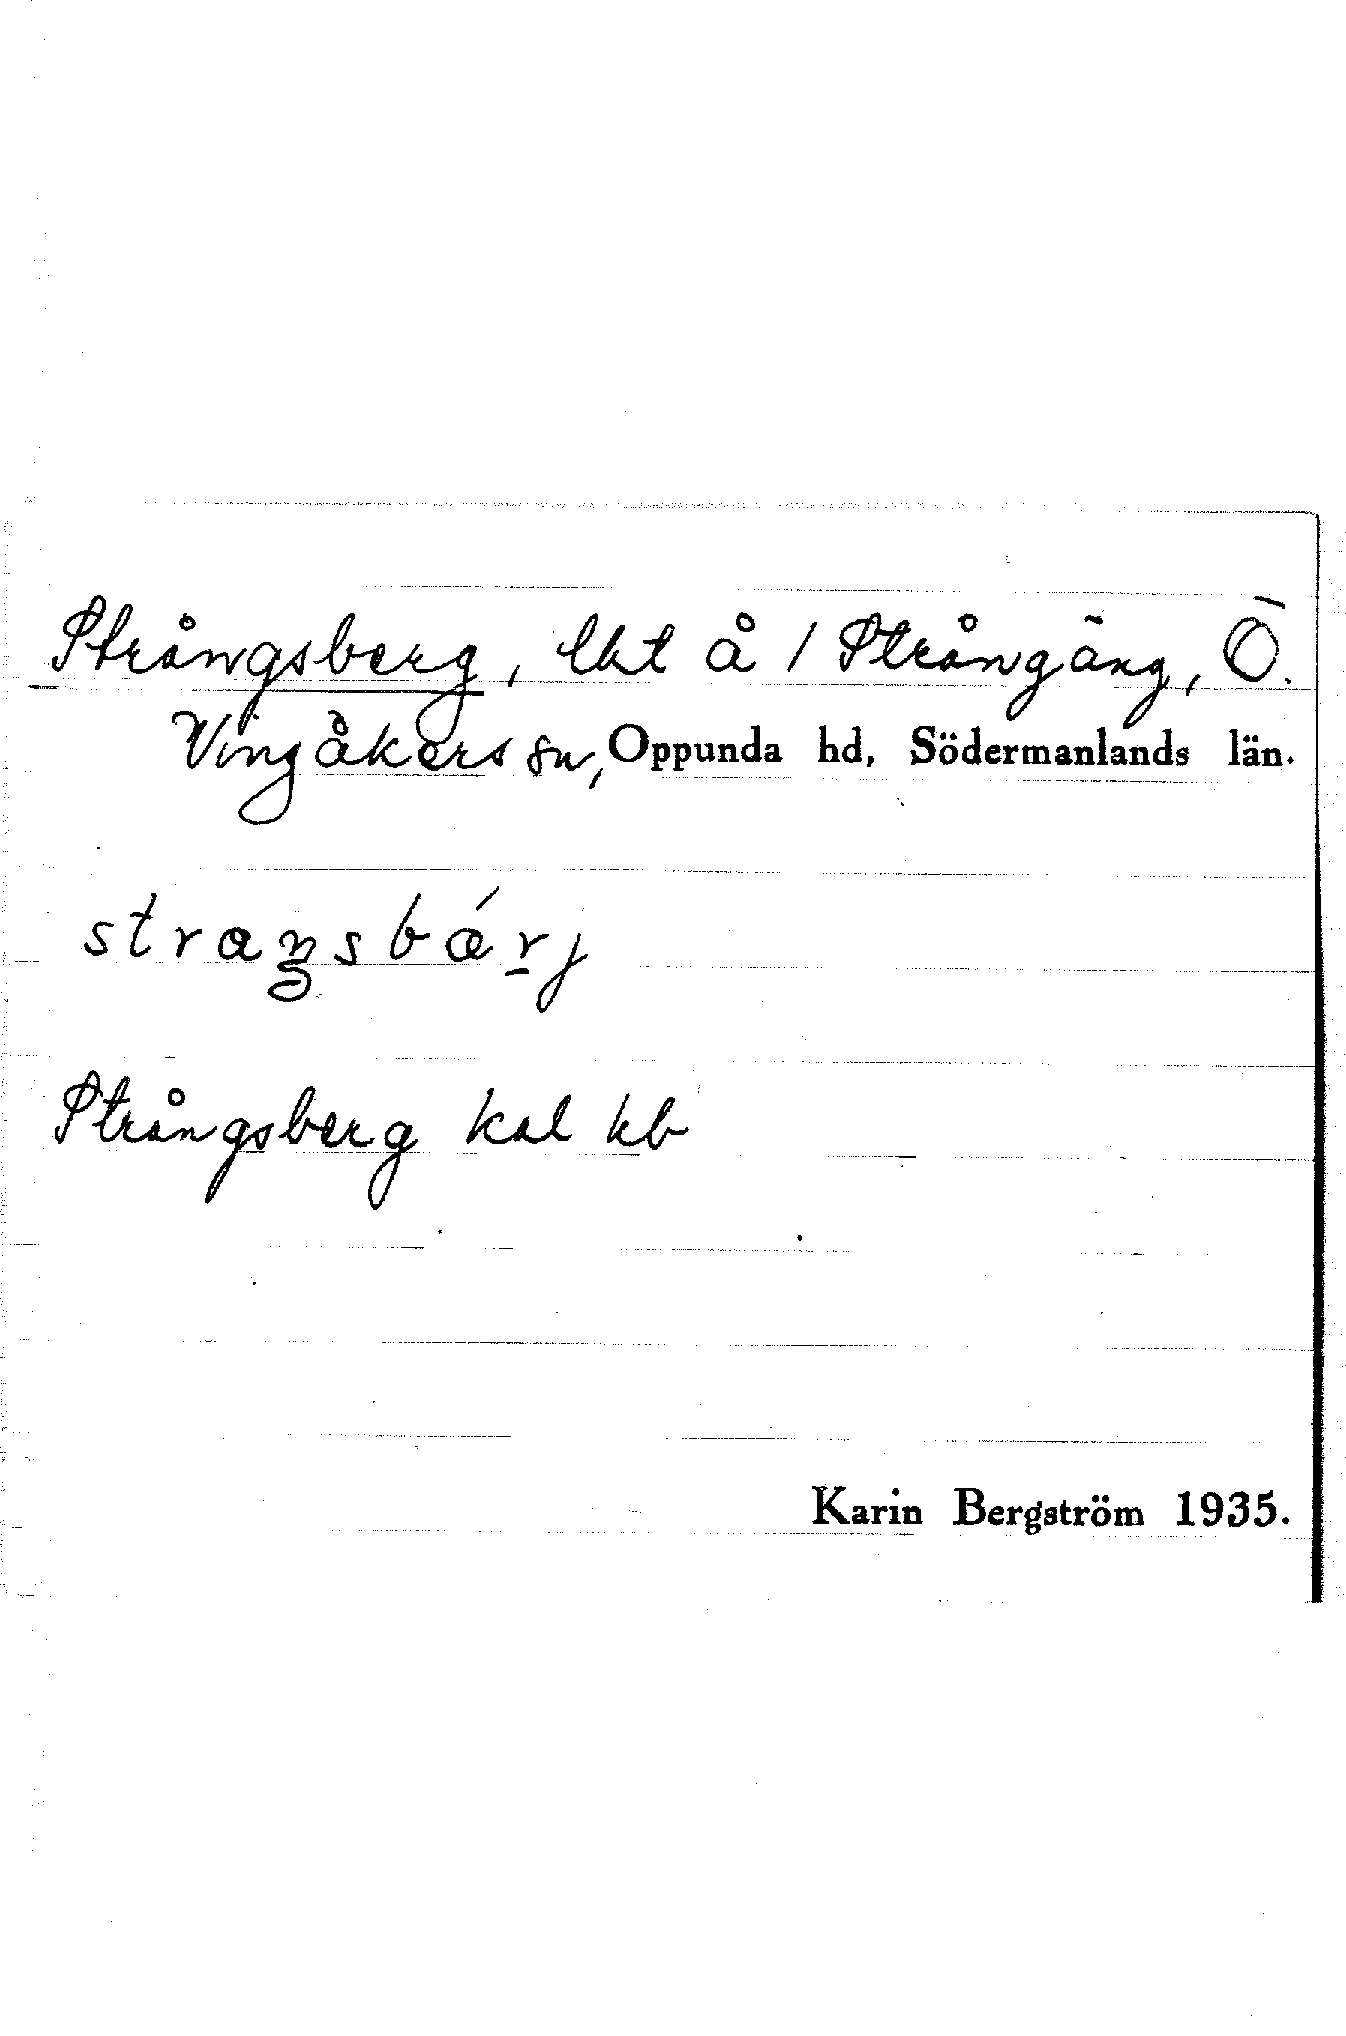 Strångsberg, lht å 1 Strångäng, Ö.
Vingåkers sn, Oppunda hd, Södermanlands län.
straŋsbǽrj
Strångsberg kal kb
Karin Bergström 1935.